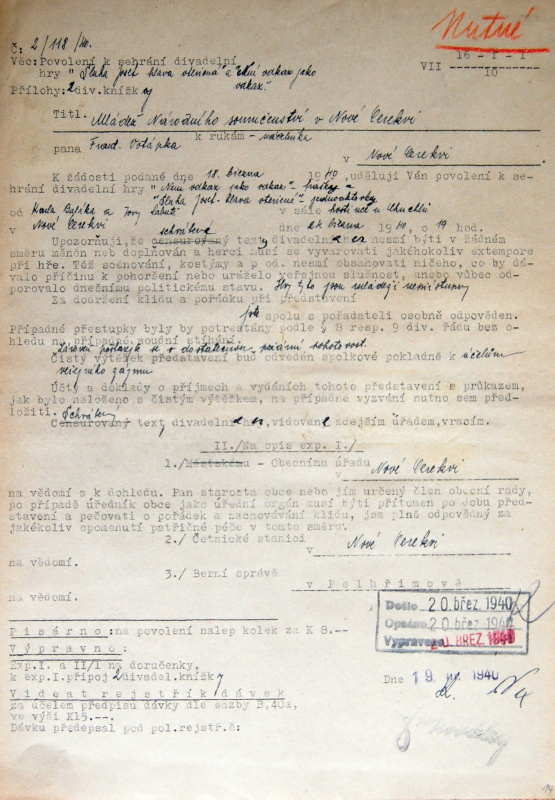 Nutné
Č: 2/118/40.
16 - I - 1
VII
10
Věc: Povolení k sehrání divadelní
hry "Sluha Josef hlava otevřená" a "
vdkaz jako vdkaz."
Přílohy: 2 divad. knížky
Titl. Mládež Národního souručenství v Nové Cerekvi
k rukám - náčelníka
pana Frant. Votápka
v Nové Cerekvi
K žádosti podané dne 18. března 1940, uděluji Vám povolení k se-
hrání divadelní hry "Není vdkaz jako vdkaz" - frašky a
"Sluha Josef - hlava otevřená" - jednoaktovky
od Karla a v sále hostince u
v Nové Cerekvi dne března 1940, o 19 hod.
schválené
Upozorňuji, že censurovaný texty divadelních her nesmí býti v žádném
směru měněn neb doplňován a herci musí se vyvarovati jakéhokoliv extempore
při hře. Též scénování, kostýmy a p od. nesmí obsahovati ničeho, co by dá-
valo příčinu k pohoršení nebo uráželo veřejnou slušnost, anebo vůbec od-
porovalo dnešnímu politickému stavu. Hry tyto jsou mládeži
Za dodržení klidu a pořádku při představení
jste spolu s pořadateli osobně odpověden.
Případné přestupky byly by potrestány podle § 8 resp. 9 div. řádu bez o-
hledu na případné soudní stíhání.
Zároveň postarejte se o dostatečnou požární pohotovost.
Čistý výtěžek představení buď odveden spolkové pokladně k účelům
veřejného zájmu
Účty a doklady o příjmech a vydáních tohoto představení s průkazem,
jak bylo naloženo s čistým výtěžkem, na případné vyzvání nutno sem před-
ložiti.
Schválený
Censurovaný texty divadelních her, vidované zdejším úřadem, vracím.
II./Na opis exp. I./
1./Městskému - Obecnímu úřadu
v Nové Cerekvi
na vědomí a k dohledu. Pan starosta obce nebo jím určený člen obecní rady,
po případě úředník obce jako úřední orgán musí býti přítomen po dobu před-
stavení a pečovati o pořádek a zachovávání klidu, jsa plně odpovědný za
jakékoliv opomenutí patřičné péče v tomto směru.
2./ Četnické stanici
v Nové Cerekvi
na vědomí.
3./ Berní správě
v Pelhřimově
na vědomí.
Došlo 20. břez. 1940
Opsáno 20. břez. 1940
Vypraveno 20. BŘEZ. 1940
Písárno: na povolení nalep kolek za K 8.--
Výpravno:
Exp.I. a II/1 na doručenky,
k exp.I.připoj 2 divadel.knížky
Dne 19. 1940
Videat rejstřík dávek
za účelem předpisu dávky dle sazby B,40a,
ve výši K15.--.
Dávku předepsal pod pol.rejstř.č: